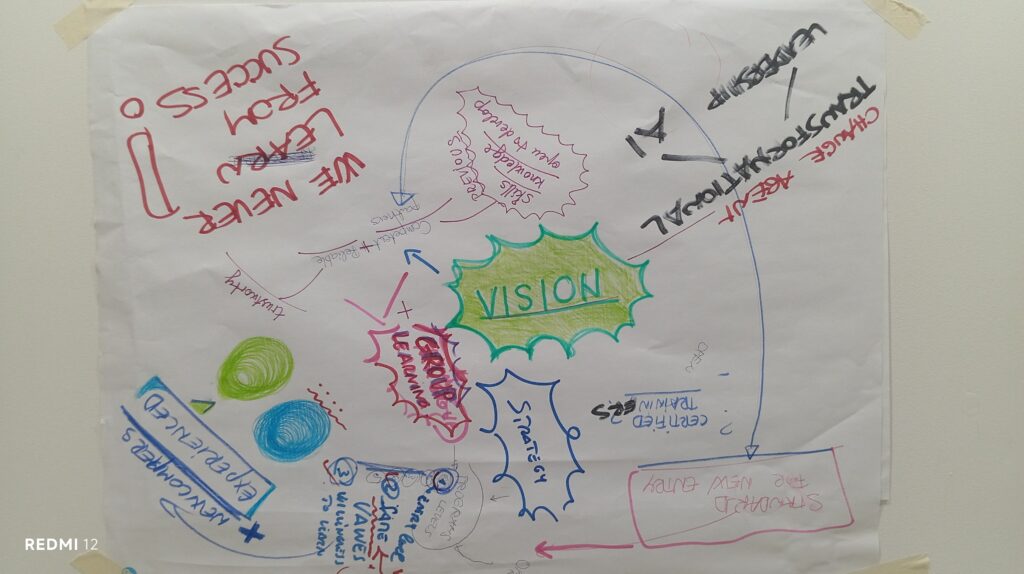 WE NEVER
LEARN
FROM
SUCCESS
!
LEADERSHIP
AI
TRANSFORMATIONAL
CHANGE
AGENT
skills
knowledge
open to develop
Competent + Reliable
partners
trustworthy
VISION
+
GROUP
LEARNING
STRATEGY
OPEN
CERTIFIED ?
TRAINERS
?
STANDARD
FOR NEW ENTRY
EXPERIENCED
NEWCOMERS
1
2
SAME
VALUES
3
WILLINGNESS
TO LEARN
REDMI 12